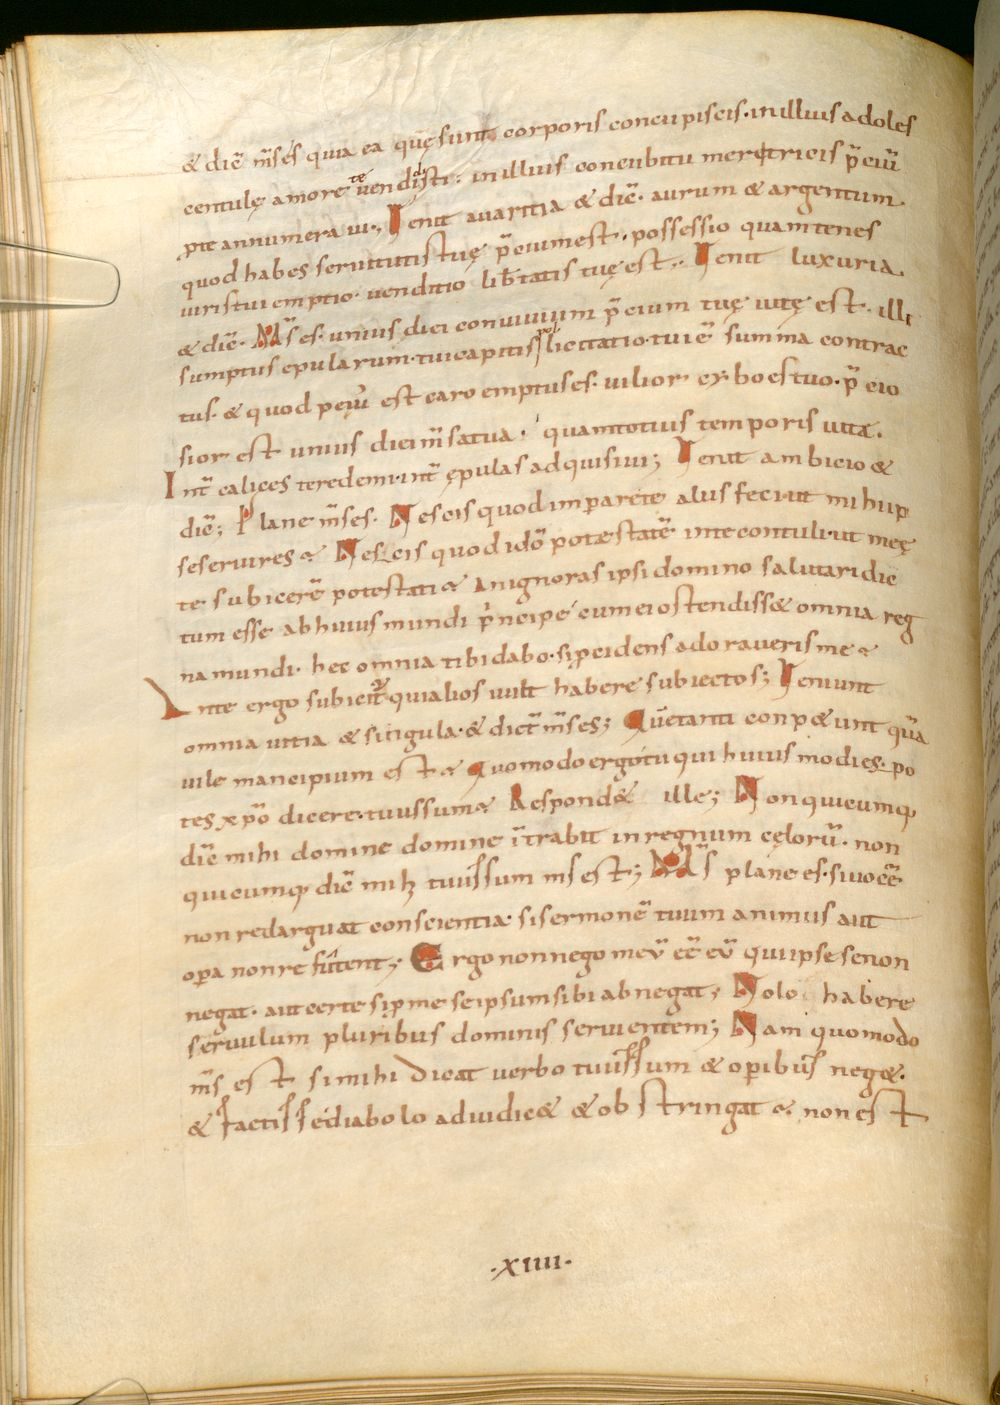 & diē m̄s és quia ea quę sunt corporis concupiscis. in illius adoles
centulę amore te vendidisti: in illius concubitu meretricis p̄ciū
p te annumeraui., Venit auaritia & diē. aurum & argentum
quod habes seruitutis tuę p̄cium est. possessio quam tenes
iuris tui emptio. venditio lib̄tatis tuę est., Venit luxuria
& diē. M̄s es. unius diei conuiuium p̄cium tuę uitę est. illi
sumptus epularum. tui capitis licitatio. tui ē summa contrac
tus. & quod peiū est caro emptus es. uilior ex hoc tuo. p̄cio
sior est unius diei m̄sa tua. quam totius temporis uita.
Int̄ calices te redemi. int̄ ępulas adquisiui; Venit ambicio &
diē; Plane m̄s es. Nescis quod imparere aliis feci ut mihi ip
se seruires? Nescis quod idō potestatē in te contuli. ut meę
te subicerē potestati? An ignoras ipsi domino saluatori dic
tum esse ab huius mundi p̄ncipe cum ei ostendiss& omnia reg
na mundi. hec omnia tibi dabo. si p̄cidens adoraueris me?
Ante ergo subicit̄ qui alios uult habere subiectos; Veniunt
omnia uitia & singula. & dict̄ m̄s es; Quē tanti conp&unt quā
uile mancipium est? Quomodo ergo tu qui huius modi es. po
tes xp̄o dicere. tuus sum? Respond& ille; Non quicumq;
diē mihi domine domine īt̄rabit in regnum cęlorū. non
quicumq; diē mihi tuus sum m̄s est; M̄s plane es. si uocē
non redarguat conscientia. si sermonē tuum animus aut
opa non refutent; Ergo non nego meū ēē eū qui ipse se non
negat. aut certe si p me se ipsum sibi abnegat; Nolo habere
seruulum pluribus dominis seruientem; Nam quomodo
m̄s est si mihi dicat uerbo tuus sum & opibus neg&.
& factis se diabolo adiudic& & obstringat? non est
.xiiii.